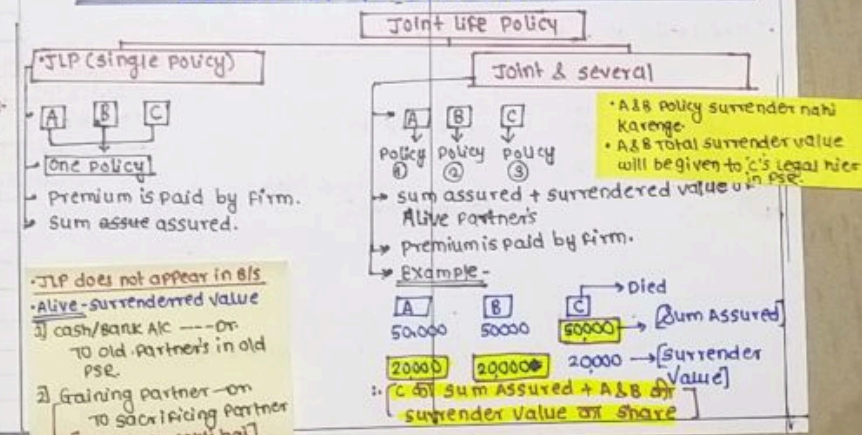 Joint Life Policy
•JLP (single Policy)
A B C
One policy
Premium is paid by Firm.
Sum assue assured.
•JLP does not appear in B/S
•Alive - surrenderred value
1) cash/Bank A/c ---- Dr.
TO Old Partner's in old
PSR.
2) Gaining Partner - Dr
TO sacrificing Partner
Joint & several
A B C
Policy Policy Policy
① ② ③
sum assured + surrendered value of
Alive Partner's
Premium is paid by Firm.
Example -
→ Died
A B C
50,000 50000 50000 → [Sum Assured]
20000 20000 20,000 → [Surrender
Value]
∴ [C का Sum Assured + A&B की
surrender value का share]
•A&B Policy surrender nahi
Karenge.
•A&B Total surrender value
will be given to 'C's Legal hier
in PSR.